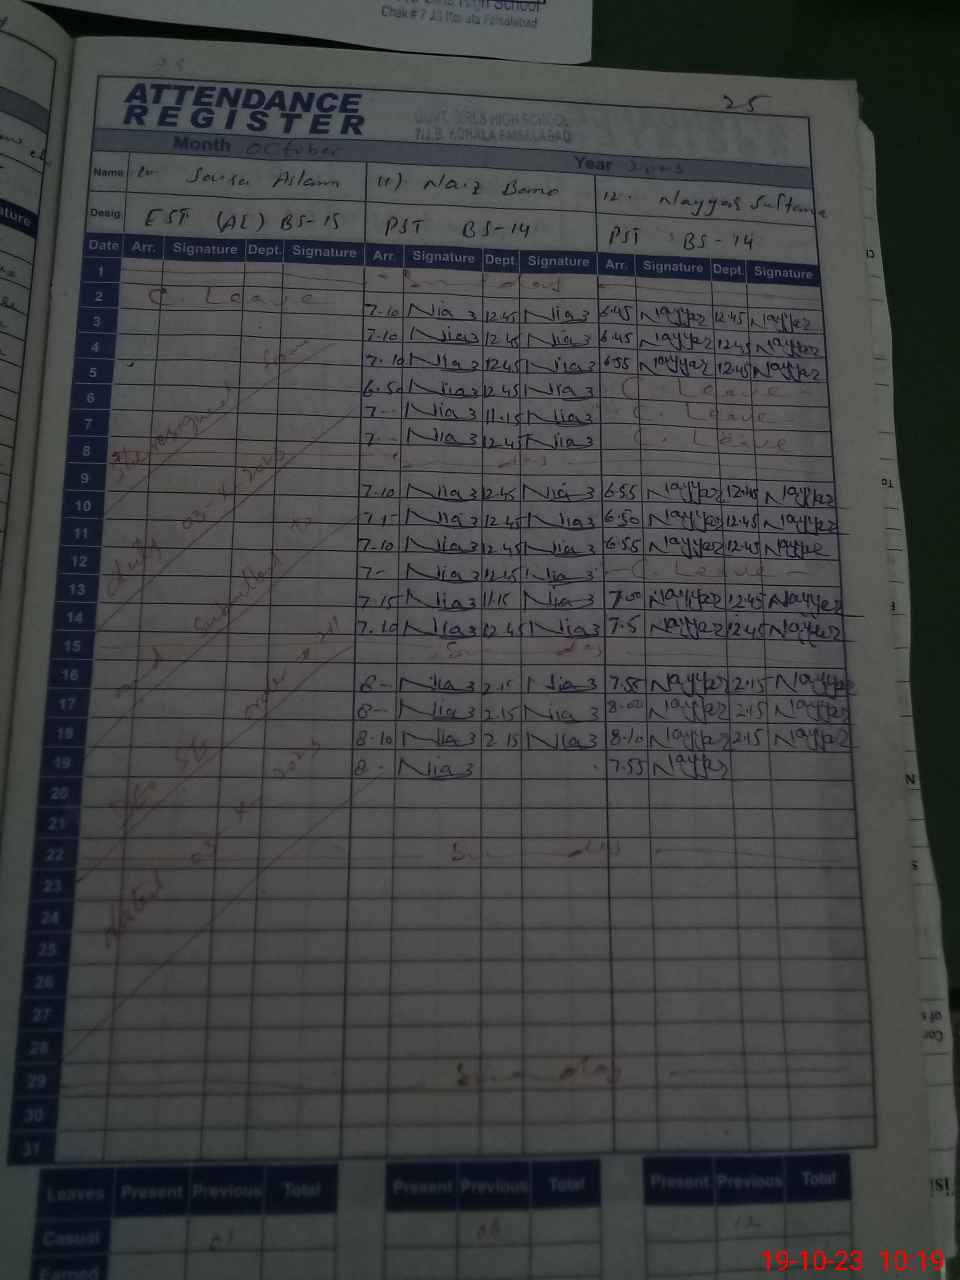 High School
Chak # 7 JB Kohala Faisalabad
25
ATTENDANCE
REGISTER
GOVT. GIRLS HIGH SCHOOL
7 J.B. KOHALA FAISALABAD
Month October Year
Name Aslam 11) Naiz Bano 12. Nayyar Sultana
Desig EST (AE) BS-15 PST BS-14 PST BS-14
Date Arr. Signature Dept. Signature Arr. Signature Dept. Signature Arr. Signature Dept. Signature
1 Sunday
2 C. Leave 7-10 Nia3 12.45 Nia3 6.45 Nayyer 12.45 Nayyer
3 7-10 Nia3 12.45 Nia3 6.45 Nayyer 12.45 Nayyer
4 7-10 Nia3 12.45 Nia3 6.55 Nayyer 12.45 Nayyer
5 6-50 Nia3 12.45 Nia3 C. Leave
6 7- Nia3 11.15 Nia3 C. Leave
7 7- Nia3 12.45 Nia3 C. Leave
8
9 7-10 Nia3 12.45 Nia3 6.55 Nayyer 12.45 Nayyer
10 Nia3 12.45 Nia3 6.50 Nayyer 12.45 Nayyer
11 7-10 Nia3 12.45 Nia3 6.55 Nayyer 12.45 Nayye
12 7- Nia3 12.45 Nia3 C Leave
13 7-15 Nia3 11.15 Nia3 7.00 Nayyer 12.45 Nayyer
14 7-10 Nia3 12.45 Nia3 7.5 Nayyer 12.45 Nayyer
15
16 8- Nia3 2.15 Nia3 7.55 Nayyer 2.15 Nayyer
17 8- Nia3 2.15 Nia3 8.00 Nayyer 2.15 Nayyer
18 8-10 Nia3 2.15 Nia3 8.10 Nayyer 2.15 Nayyer
19 8- Nia3 7.55 Nayyer
20
21
22
23
24
25
26
27
28
29 Sunday
30
31
She resigned from
duty 03-X-2023
and submitted to
order # 211
DEO SE
dated 03 X- 2023
Leaves Present Previous Total Present Previous Total Present Previous Total
Casual 01 06 12
Earned
19-10-23 10:19